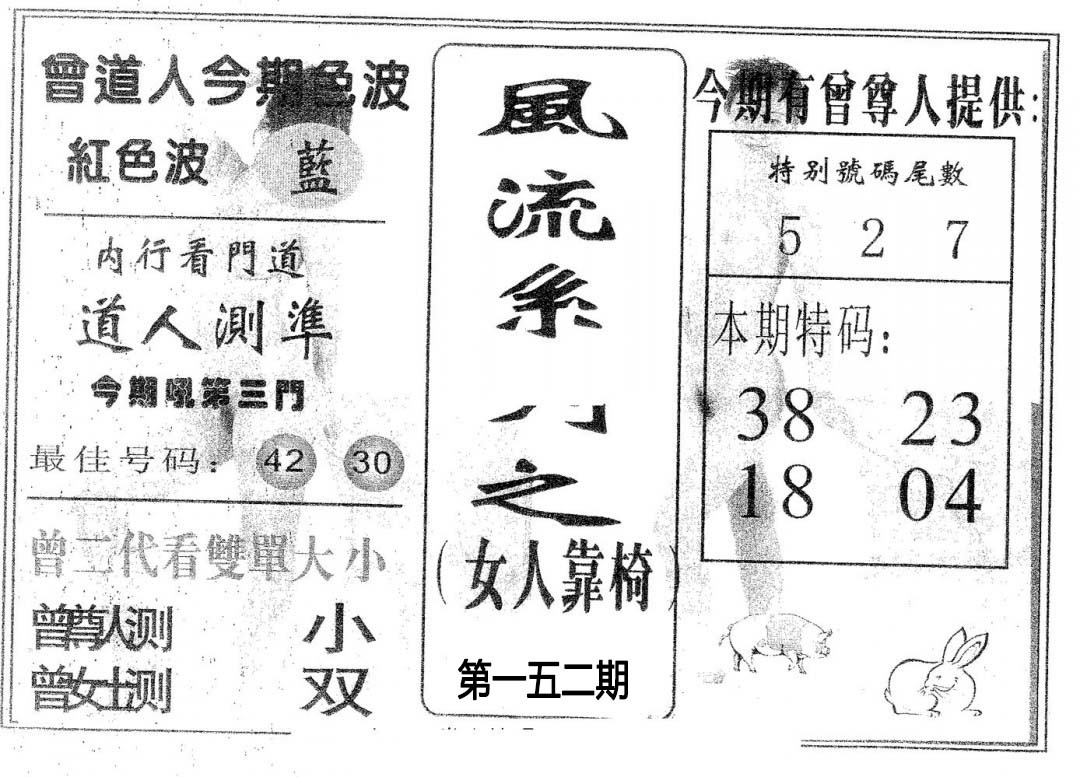 曾道人今期色波
紅色波
藍
内行看門道
道人測準
今期吼第三門
最佳号码：
42
30
曾二代看雙單大小
曾尊人测 小
曾女士测 双
風流系
之
（女人靠椅）
第一五二期
今期有曾尊人提供：
特别號碼尾數
5 2 7
本期特码：
38 23
18 04